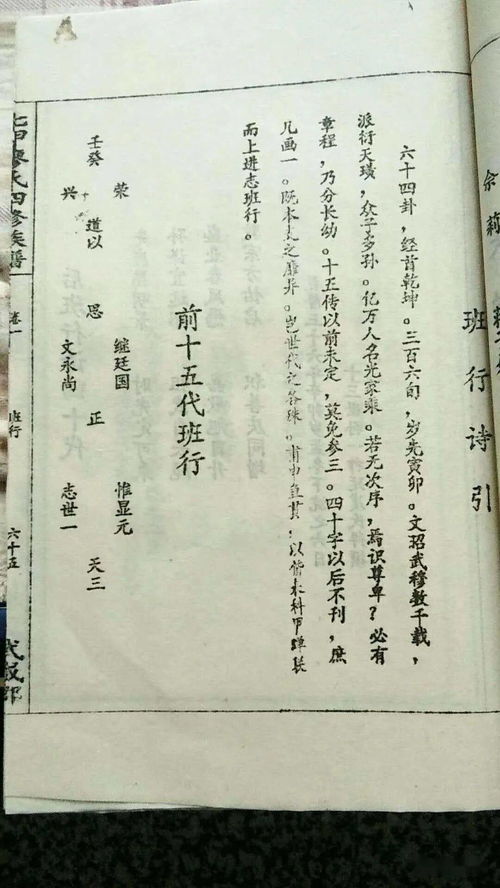 班行诗引
六十四卦，经首乾坤。三百六旬，岁先寅卯。文昭武穆数千载，
派衍天璜，众子多孙。亿万人名光冢乘。若无次序，焉识尊卑？必有
章程，乃分长幼。十五传以前未定，莫免参三。四十字以后不刊，庶
几画一。既本支之靡异。岂世代之各殊。甫申鱼贯，以偕本科甲蝉长
而上进志班行。
前十五代班行
荣 继廷国 惟显元
壬癸 道以 思 正 天三
兴 文永尚 志世一
廖氏四修族谱
卷一
班行
六十五
武威郡